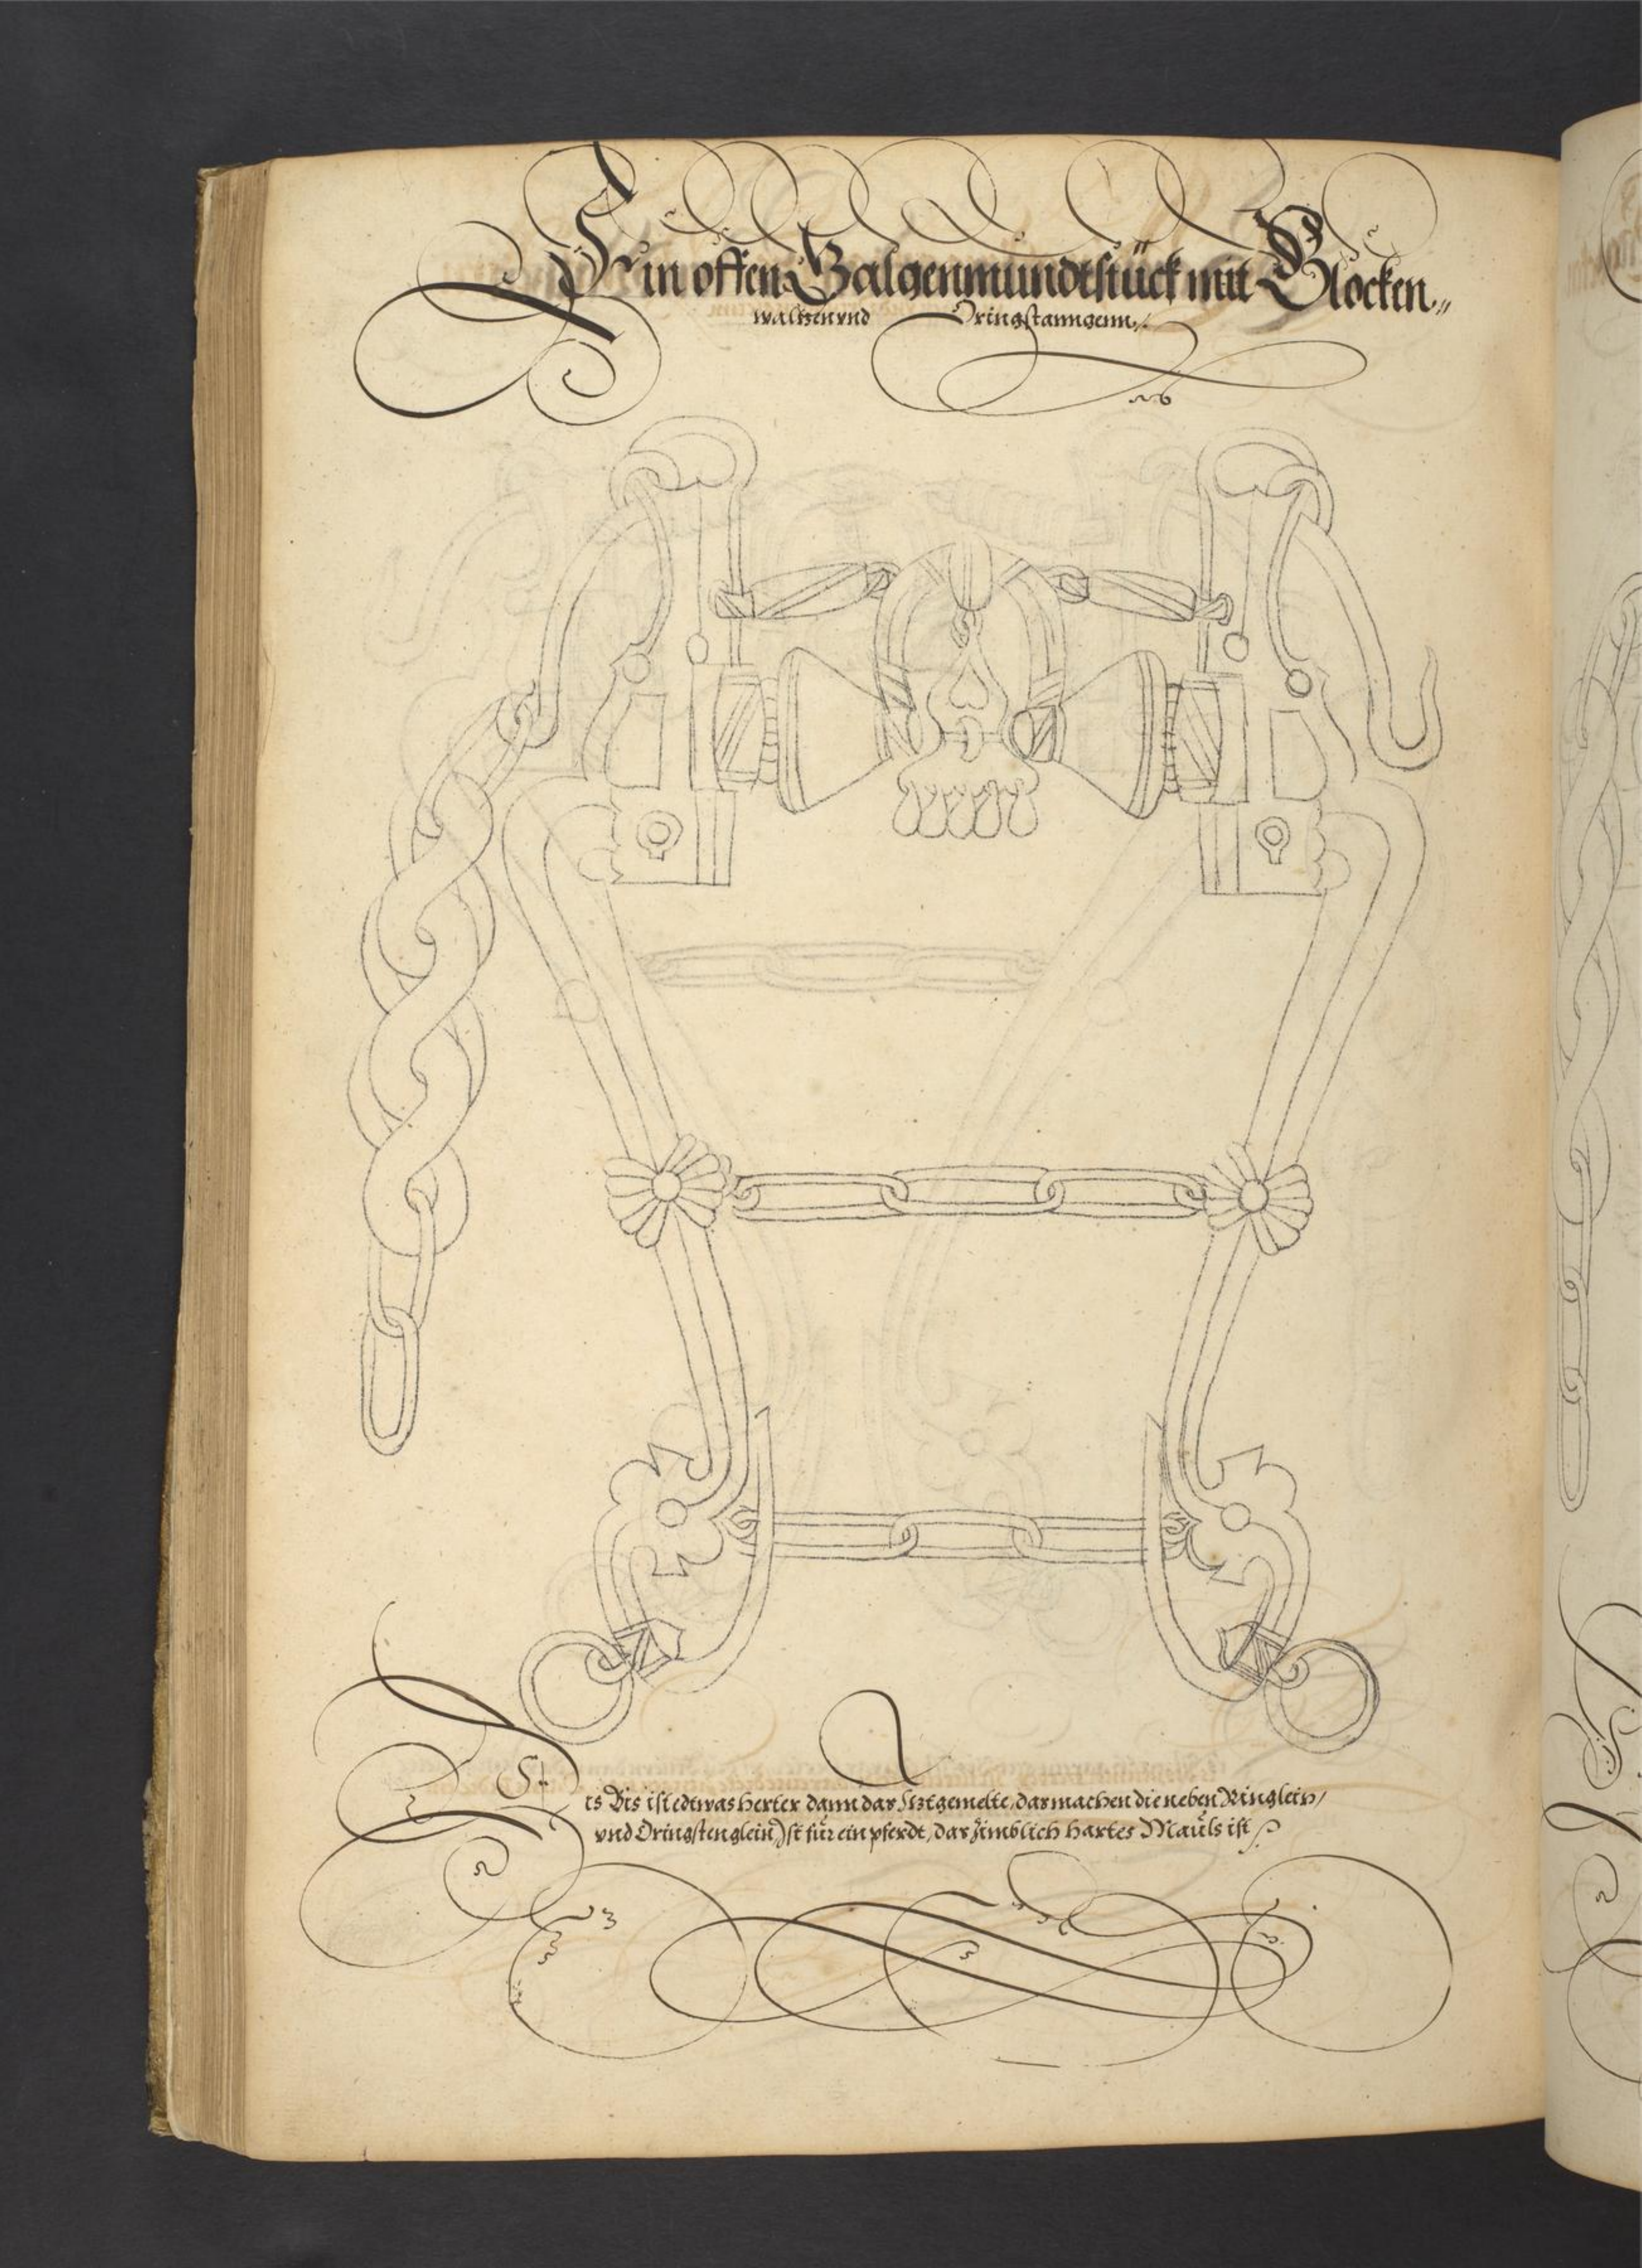 Ein offen Galgenmundtstück mit Glocken„
waltzen vnd Dringstanngenn„
ts Bis ist edtwas herter dann das Jtztgemelte, das machen die neben Ringlein/
vnd Dringstenglein Jst für ein pferdt, das zimblich hartes Mauls ist